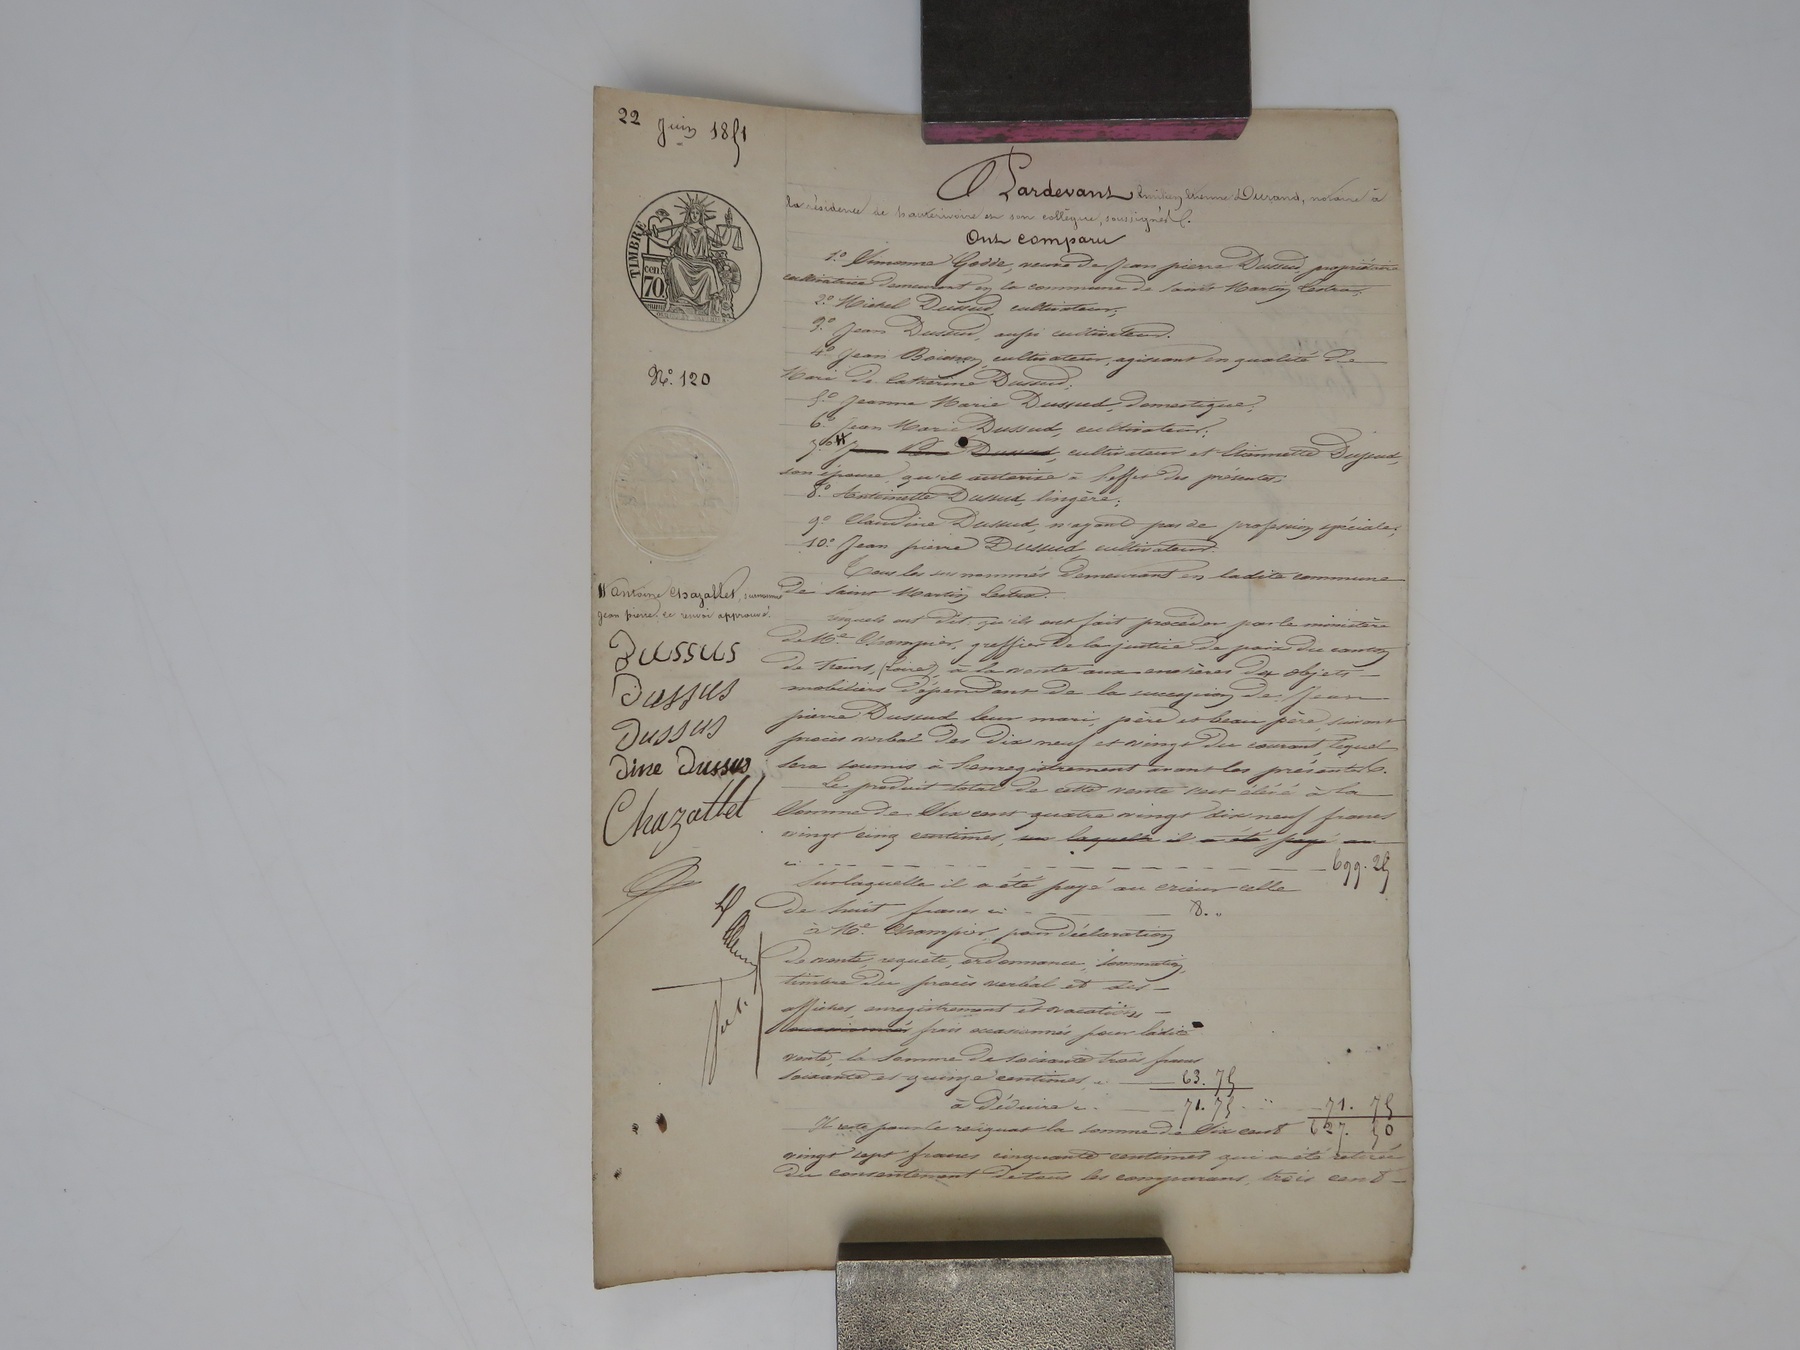 22 Juin 1851
TIMBRE
cen
70
Pardevant Etienne Durand, notaire à
la résidence de hauterivoire et son collègue, soussignés.
Ont comparu
1.º Simonne Godde, veuve de Jean pierre Dussud, propriétaire
cultivatrice demeurant en la commune de Saint Martin Lestra;
2.º Michel Dussud, cultivateur;
3.º Jean Dussud, aussi cultivateur.
4.º Jean cultivateur, agissant en qualité de
Mari de Catherine Dussud;
5.º Jeanne Marie Dussud, domestique;
6.º Jean Marie Dussud, cultivateur;
7.º # Dussud, cultivateur et Etiennette Dussud,
son épouse, qu'il autorise à l'effet des présentes;
8.º Antoinette Dussud, lingère;
9.º Claudine Dussud, n'ayant pas de profession spéciale;
10.º Jean pierre Dussud, cultivateur.
Tous les sus nommés demeurant en ladite commune
de Saint Martin Lestra.
Lesquels ont dit qu'ils ont fait procéder par le ministère
de Me. Champier, greffier de la justice de paix du canton
de feurs, (Loire), à la vente aux enchères des objets
mobiliers dépendant de la succession de Jean
pierre Dussud leur mari, père et beau père, suivant
procès verbal des dix neuf et vingt du courant, lequel
sera soumis à l'enregistrement avant les présentes.
Le produit total de cette vente s'est élevé à la
Somme de Six cent quatre vingt dix neuf francs
vingt cinq centimes, sur laquelle il a été payé au
ci 699. 25
Sur laquelle il a été payé au crieur celle
de huit francs ci 8. "
à Me. Champier, pour déclaration
de vente, requête, ordonnance, sommation,
timbre du procès verbal et des
affiches, enregistrement et vacations
frais occasionnés pour ladite
vente, la Somme de soixante trois francs
soixante et quinze centimes, ci 63. 75
à Déduire ci 71. 75 71. 75
Il reste pour le reliquat la somme de Six cent 627. 50
vingt sept francs cinquante centimes qui a été retirée
du consentement de tous les comparans, trois cent
Nº. 120
# Antoine Chazallet, surnommé
Jean pierre. Ce renvoi approuvé.
Dussus
Dussus
Dussus
Dine Dussus
Chazallet